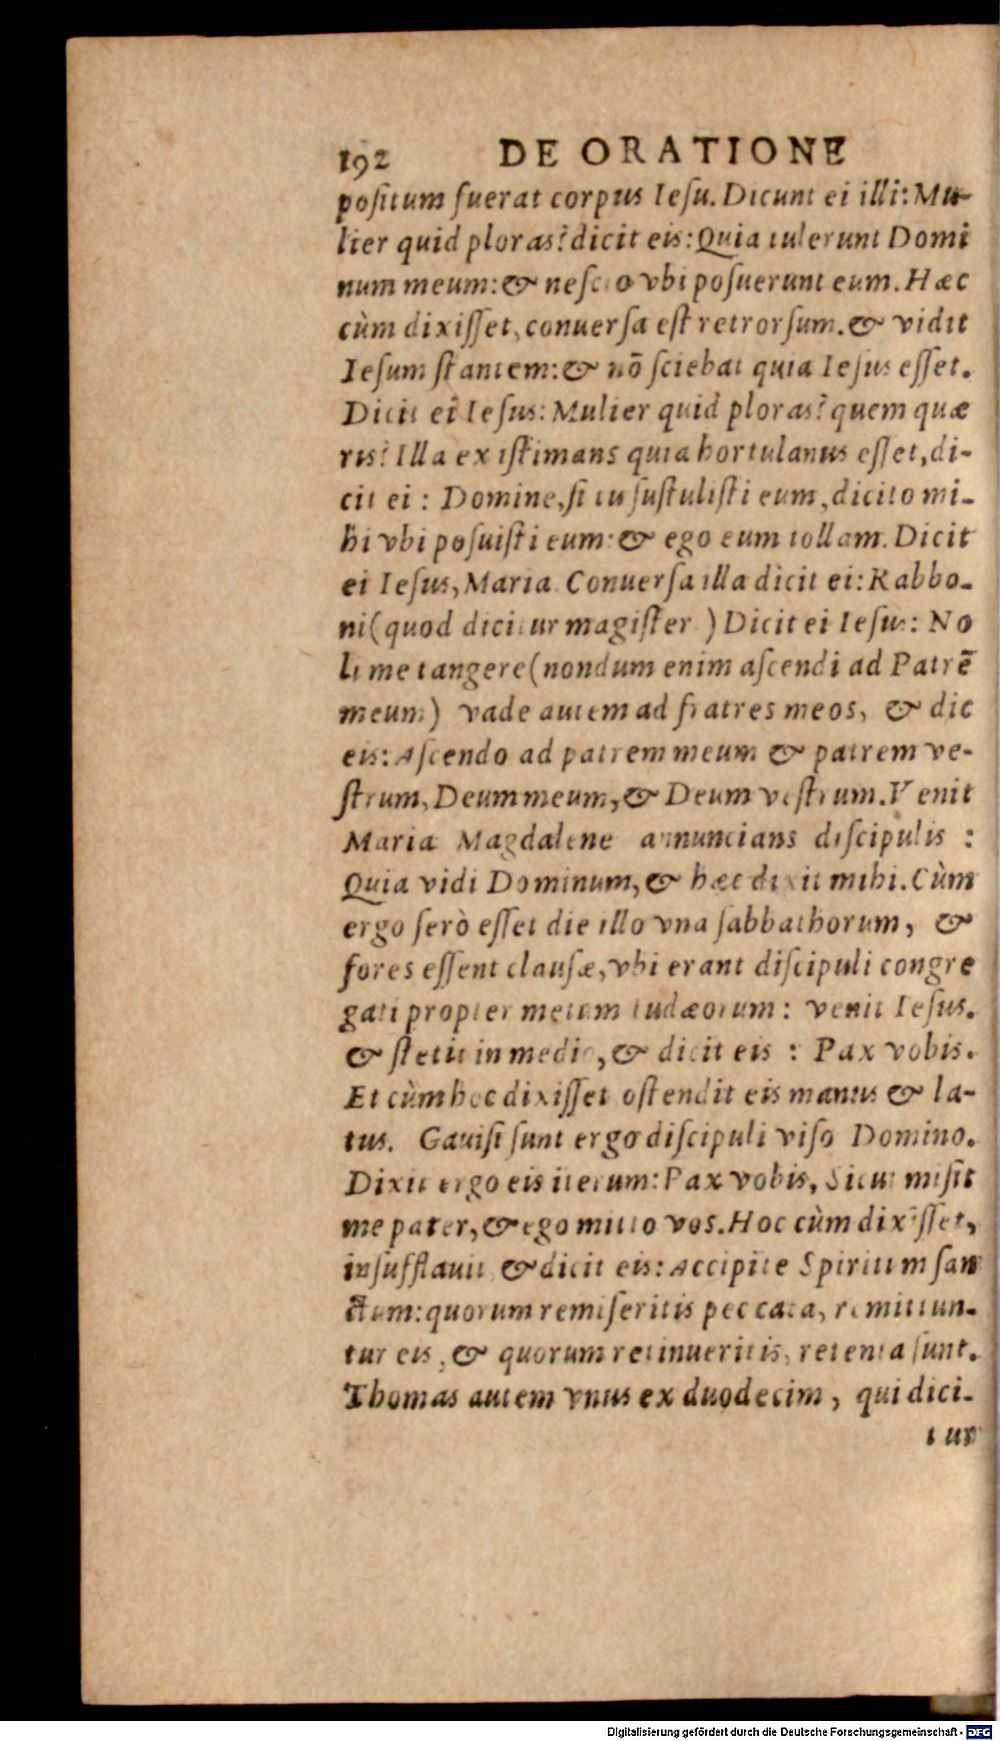 192 DE ORATIONE
positum fuerat corpus Iesu. Dicunt ei illi: Mu-
lier quid ploras? dicit eis: Quia tulerunt Domi
num meum: & nescio vbi posuerunt eum. Hæc
cùm dixisset, conuersa est retrorsum. & vidit
Iesum stantem: & nō sciebat quia Iesus esset.
Dicit ei Iesus: Mulier quid ploras? quem quæ
ris? Illa existimans quia hortulanus esset, di-
cit ei : Domine, si tu sustulisti eum, dicito mi-
hi vbi posuisti eum: & ego eum tollam. Dicit
ei Iesus, Maria. Conuersa illa dicit ei: Rabbo-
ni (quod dicitur magister) Dicit ei Iesus: No
li me tangere (nondum enim ascendi ad Patrē
meum) vade autem ad fratres meos, & dic
eis: Ascendo ad patrem meum & patrem ve-
strum, Deum meum, & Deum vestrum. Venit
Maria Magdalene annuncians discipulis :
Quia vidi Dominum, & hæc dixit mihi. Cùm
ergo serò esset die illo vna sabbathorum, &
fores essent clausæ, vbi erant discipuli congre
gati propter metum Iudæorum : venit Iesus.
& stetit in medio, & dicit eis : Pax vobis.
Et cùm hoc dixisset ostendit eis manus & la-
tus. Gauisi sunt ergo discipuli viso Domino.
Dixit ergo eis iterum: Pax vobis, Sicut misit
me pater, & ego mitto vos. Hoc cùm dixisset,
insufflauit & dicit eis: Accipite Spiritum san
ctum: quorum remiseritis peccata, remittun-
tur eis, & quorum retinueritis, retenta sunt.
Thomas autem vnus ex duodecim, qui dici-
tur
Digitalisierung gefördert durch die Deutsche Forschungsgemeinschaft - DFG